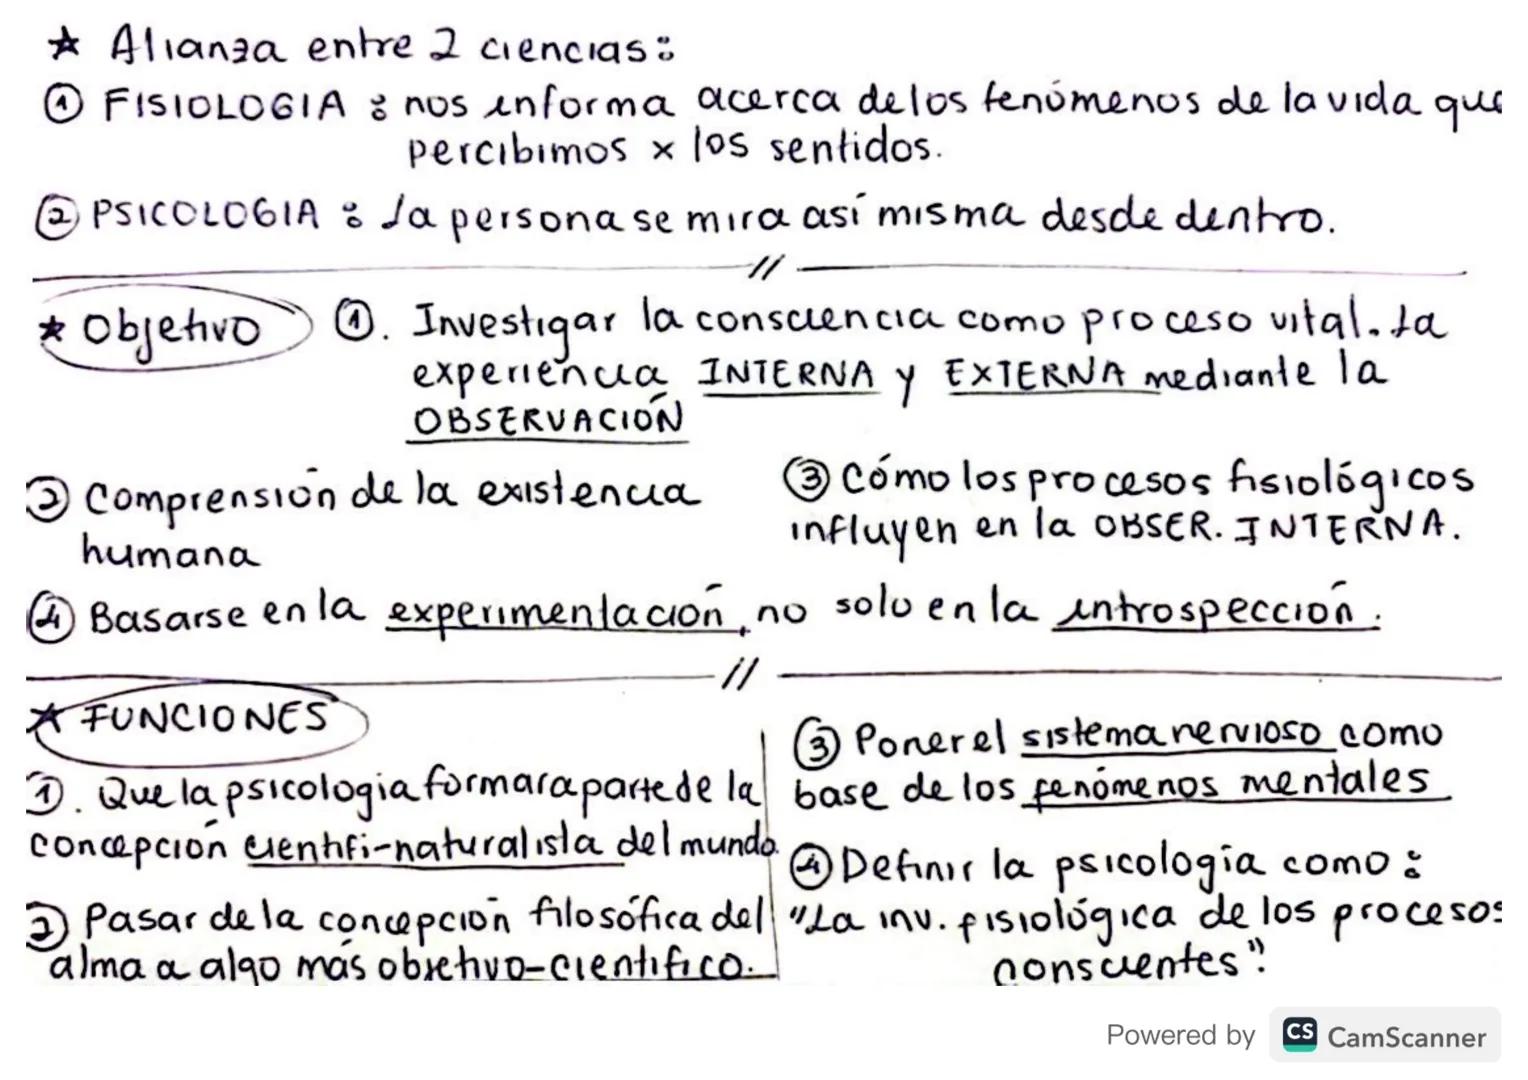 ★ Alianza entre 2 ciencias:
① FISIOLOGIA : nos informa acerca de los fenómenos de la vida que
percibimos x los sentidos.
② PSICOLOGIA : La persona se mira así misma desde dentro.
//
★ Objetivo
①. Investigar la consciencia como proceso vital. La
experiencia INTERNA y EXTERNA mediante la
OBSERVACIÓN
② Comprensión de la existencia
humana
③ Cómo los procesos fisiológicos
influyen en la OBSER. INTERNA.
④ Basarse en la experimentación, no solo en la introspección.
//
★ FUNCIONES
①. Que la psicologia formara parte de la
concepción cientifi-naturalista del mundo.
② Pasar de la concepción filosófica del
alma a algo más objetivo-cientifico.
③ Poner el sistema nervioso como
base de los fenómenos mentales
④ Definir la psicología como :
"La inv. fisiológica de los procesos
conscientes".
Powered by CS CamScanner